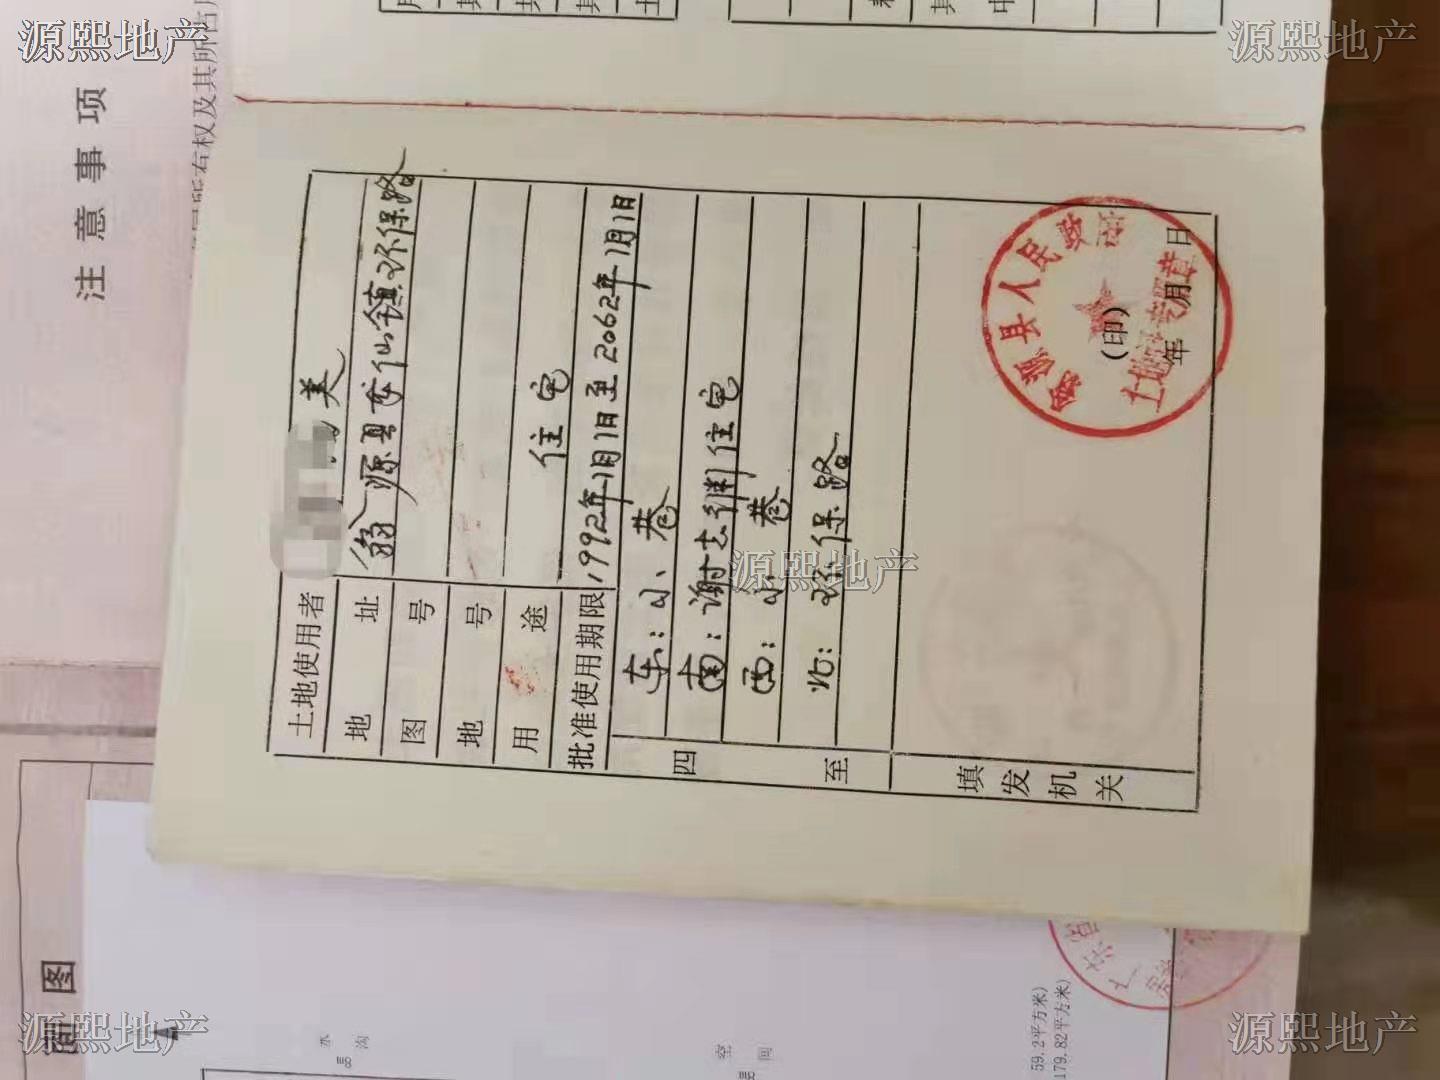 源熙地产
源熙地产
注意事项
土地使用者 美
地址 翁源县龙仙镇环保路
图号
地号
用途 住宅
批准使用期限 1992年1月1日至2062年1月1日
四至
东：小巷
南：谢志 住宅
西：小巷
北：环保路
填发机关
翁源县人民政府
土地 专用章
（印）
年月日
源熙地产
面图
水沟
空间
59.2平方米）
179.82平方米）
广东省
源熙地产
源熙地产